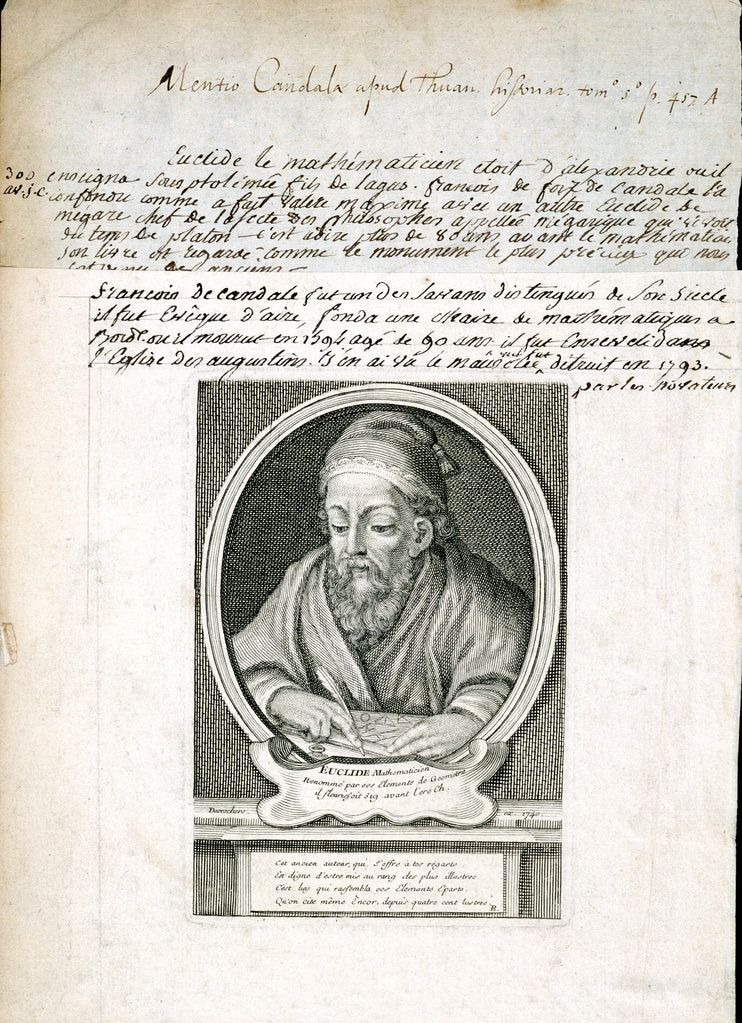 Mentio Candalæ apud Thuan. historiar. tom° 5° p. 457. A
Euclide le mathématicien etoit d'alexandrie ou il
300 av. j. c. enseigna sous ptolémée fils de lagus. françois de foix de candale l'a
confondu comme a fait valere maxime avec un autre Euclide de
megare chef de la secte des philosophes appellée mégarique qui vivoit
du tems de platon c'est a dire plus de 80 ans avant le mathématicien
son livre est regardé comme le monument le plus précieux qui nous
des anciens
françois de candale fut un des savans distingués de son siecle
il fut Evêque d'aire, fonda une chaire de mathématiques a
Bord. ou il mourut en 1594 agé de 90 ans il fut Enseveli dans
l'Eglise des augustins. j'en ai vu le mausolée qui fut détruit en 1793.
par les novateurs
EUCLIDE Mathematicien
Renommé par ses Elements de Geometrie
il fleurissoit 319 avant l'ere Ch.
Desrochers. ex. 1740.
Cet ancien auteur, qui s'offre à tes regarts
Est digne d'estre mis au rang des plus illustres
C'est luy qui rassembla ces Elements Eparts.
Qu'on cite même Encor, depuis quatre cent lustres
R.